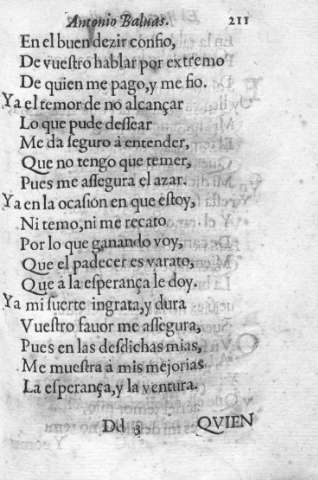 Antonio Baluas. 211
En el buen dezir confio,
De vuestro hablar por extremo
De quien me pago, y me fio.
Ya el temor de no alcançar
Lo que pude dessear
Me da seguro à entender,
Que no tengo que temer,
Pues me assegura el azar.
Ya en la ocasiòn en que estoy,
Ni temo, ni me recato
Por lo que ganando voy,
Que el padecer es varato,
Que à la esperança le doy.
Ya mi suerte ingrata, y dura
Vuestro fauor me assegura,
Pues en las desdichas mias,
Me muestra à mis mejorias
La esperança, y la ventura.
Dd 3 QVIEN